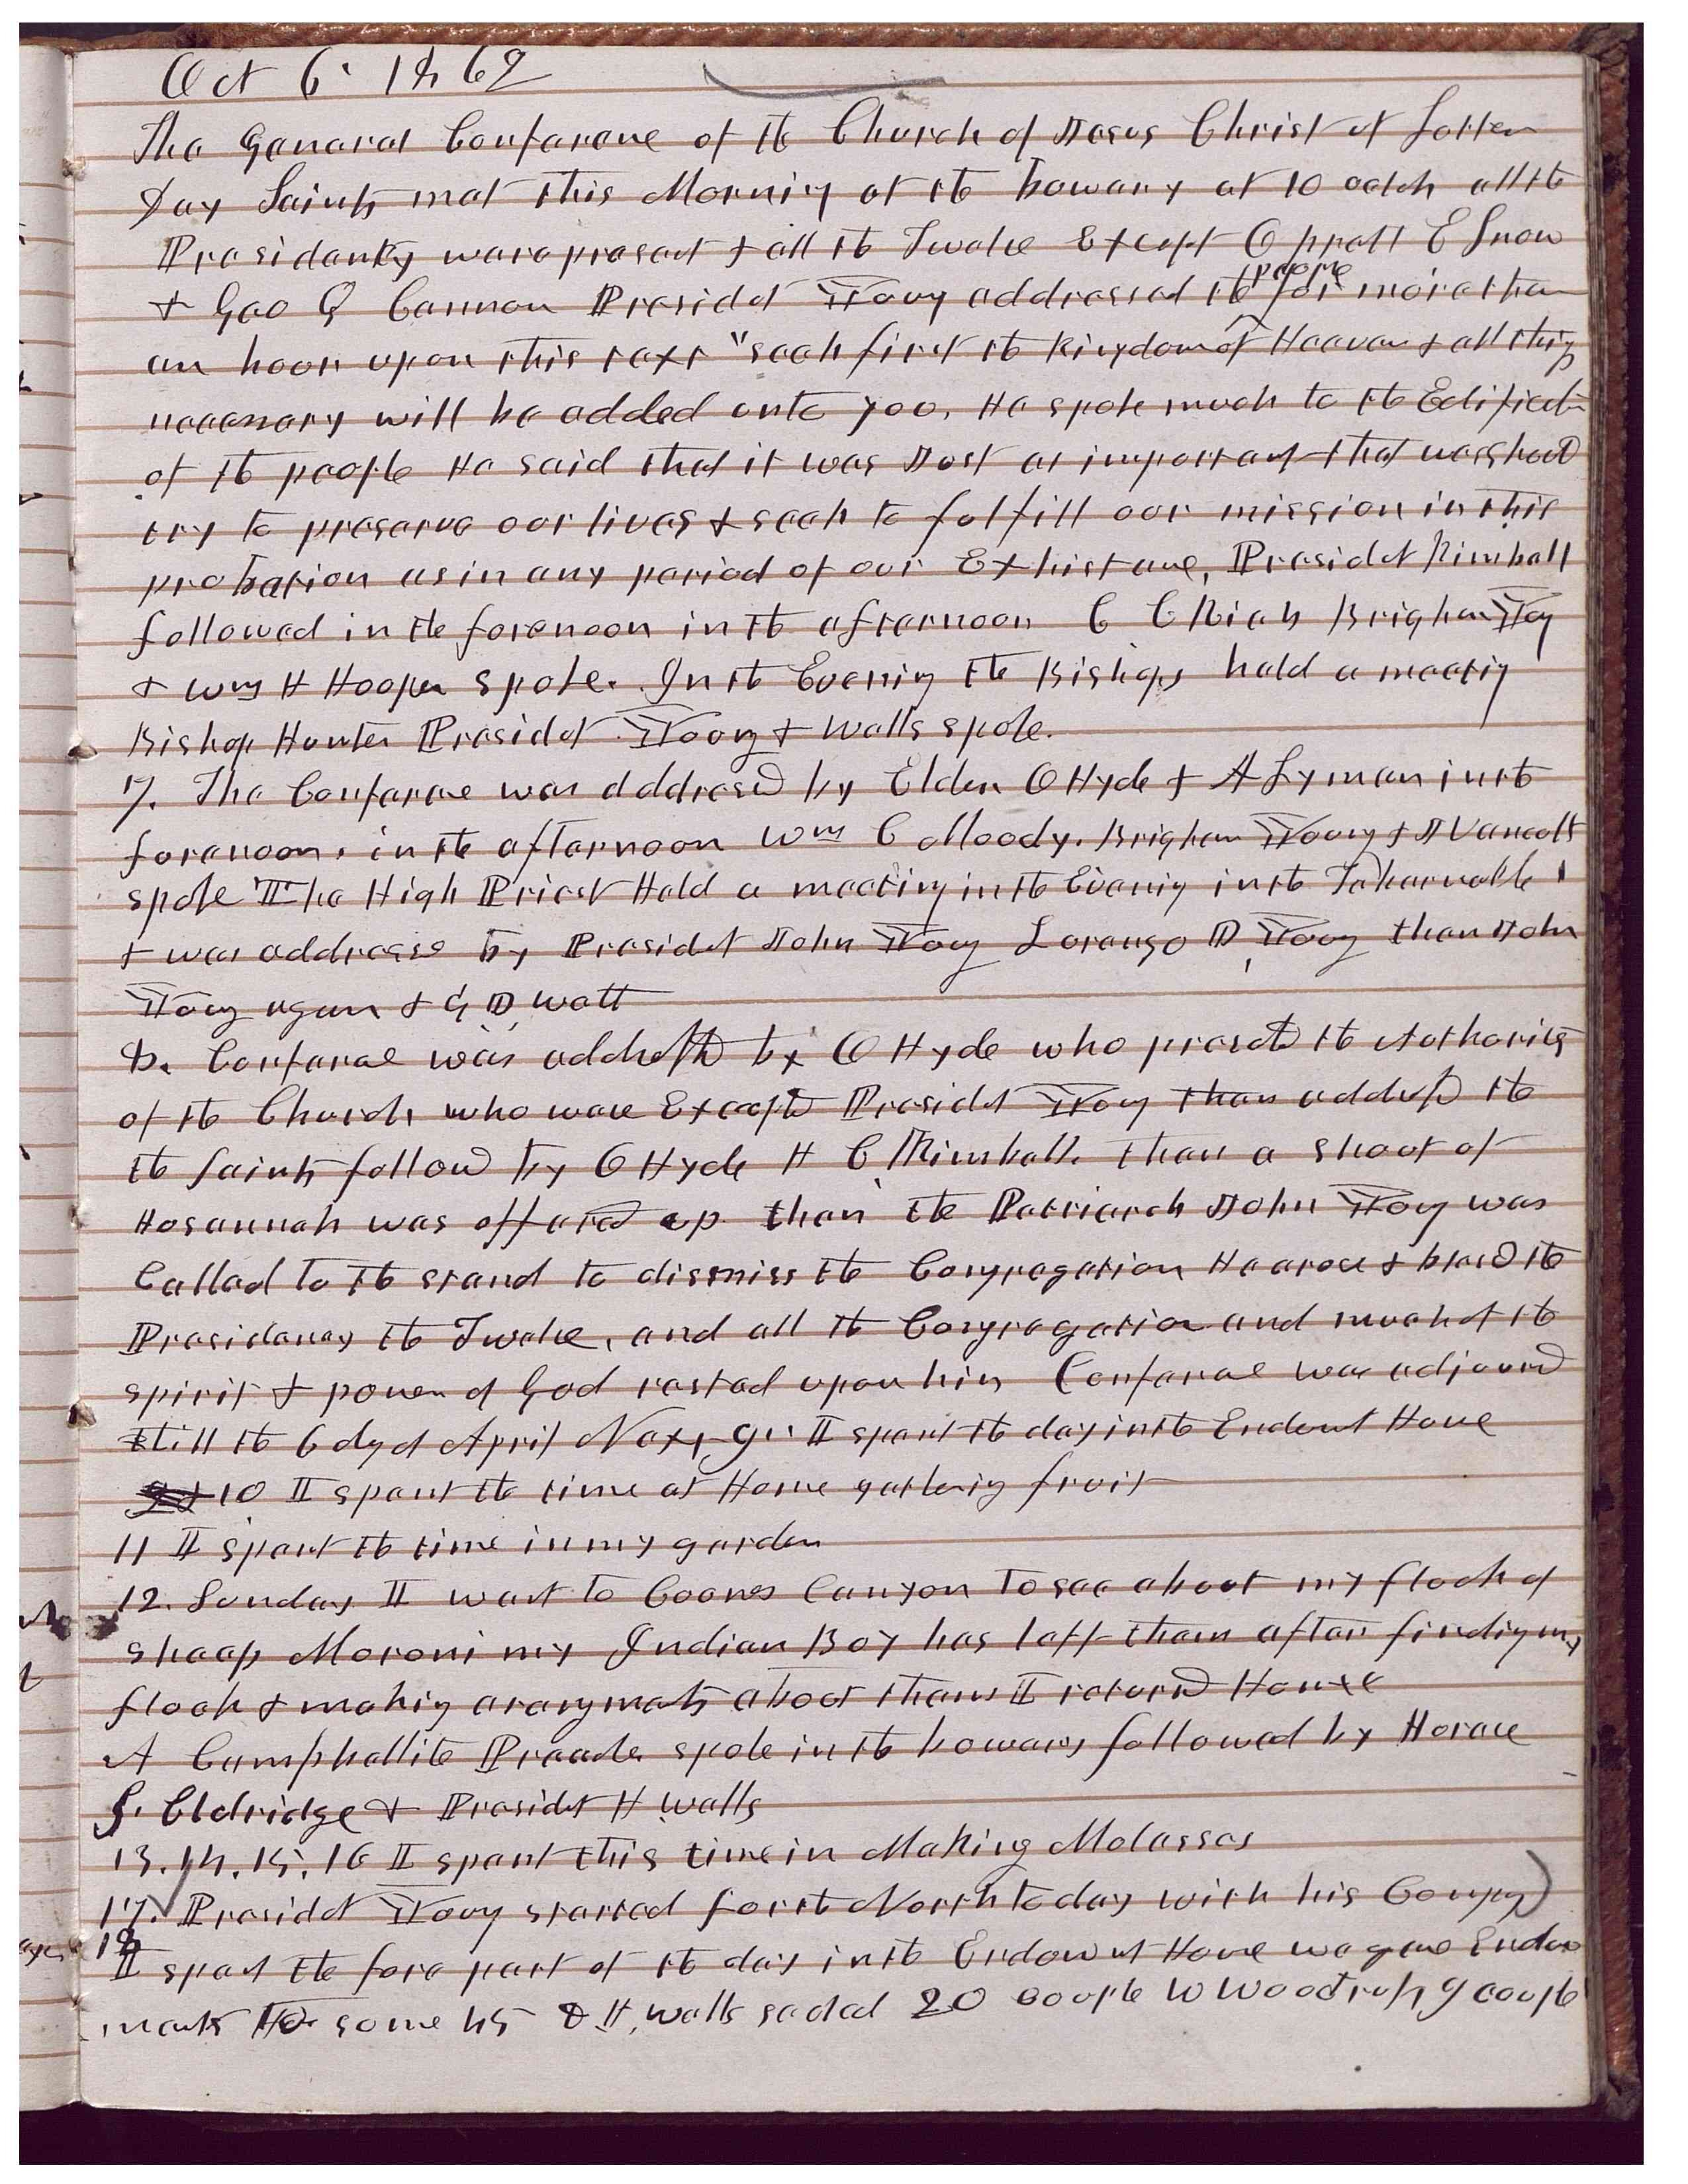 Oct 6. 1862
The General Conferance of the Church of Jesus Christ of Latter
Day Saints met this Morning at the bowery at 10 oclok all the
Presidency were present & all the Twelve Except O pratt E Snow
& Geo Q Cannon Presidet Young addressed the people for more than
an hour upon this text "seek first the kingdom of Heaven & all things
necessary will be added unto you. He spoke much to the Edificati
of the people He said that it was Just as important that we should
try to preserve our lives & seek to fulfill our mission in this
probation as in any period of our Exhistane, Presidet Kimball
followed in the forenoon in the afternoon C C Rich Brigham Young
& Wm H Hooper spoke. In the Evening the Bishops held a meeting
Bishop Hunter Presidet Young & Wells spoke.
7. The Conferance was addressed by Elder O Hyde & A Lyman in the
forenoon. in the afternoon Wm C Moody. Brigham Young & J Vancott
spoke The High Priest Held a meeting in the Evening in the Tabernacle
& was addresse by Presidet John Young Lorenzo D, Young then John
Young again & G, D, Watt
8. Conferance was addressed by O Hyde who presented the Authorities
of the Church, who were Excepted Presidet Young then addressed the
the Saints followed by O Hyde H C Kimball. then a shout of
Hosannah was offered up. then the Patriarch John Young was
Called to the stand to dismiss the Congregation He arose & blessed the
Presidency the Twelve, and all the Congregation and much of the
spirit & power of God rested upon him Conferance was adjourned
till the 6 dy of April Next, 9" I spent the day in the Endowmt House
10 I spent the time at Home gathering fruit
11 I spent the time in my garden
12. Sunday I went to Coones Canyon To see about my flock of
sheep Moroni my Indian Boy has left them after finding my
flock & making arangments about them I returned Home
A Campbellite Preacher spoke in the bowery followed by Horace
S. Eldridge & Presidet H Wells
13. 14. 15. 16 I spent this time in Making Molasses
17. Presidet Young started for the North to day with his Company
18 I spent the fore part of the day in the Endowmt House we gave Endow
ments to some 45 & H, Wells sealed 20 couple W Woodruff 9 couple